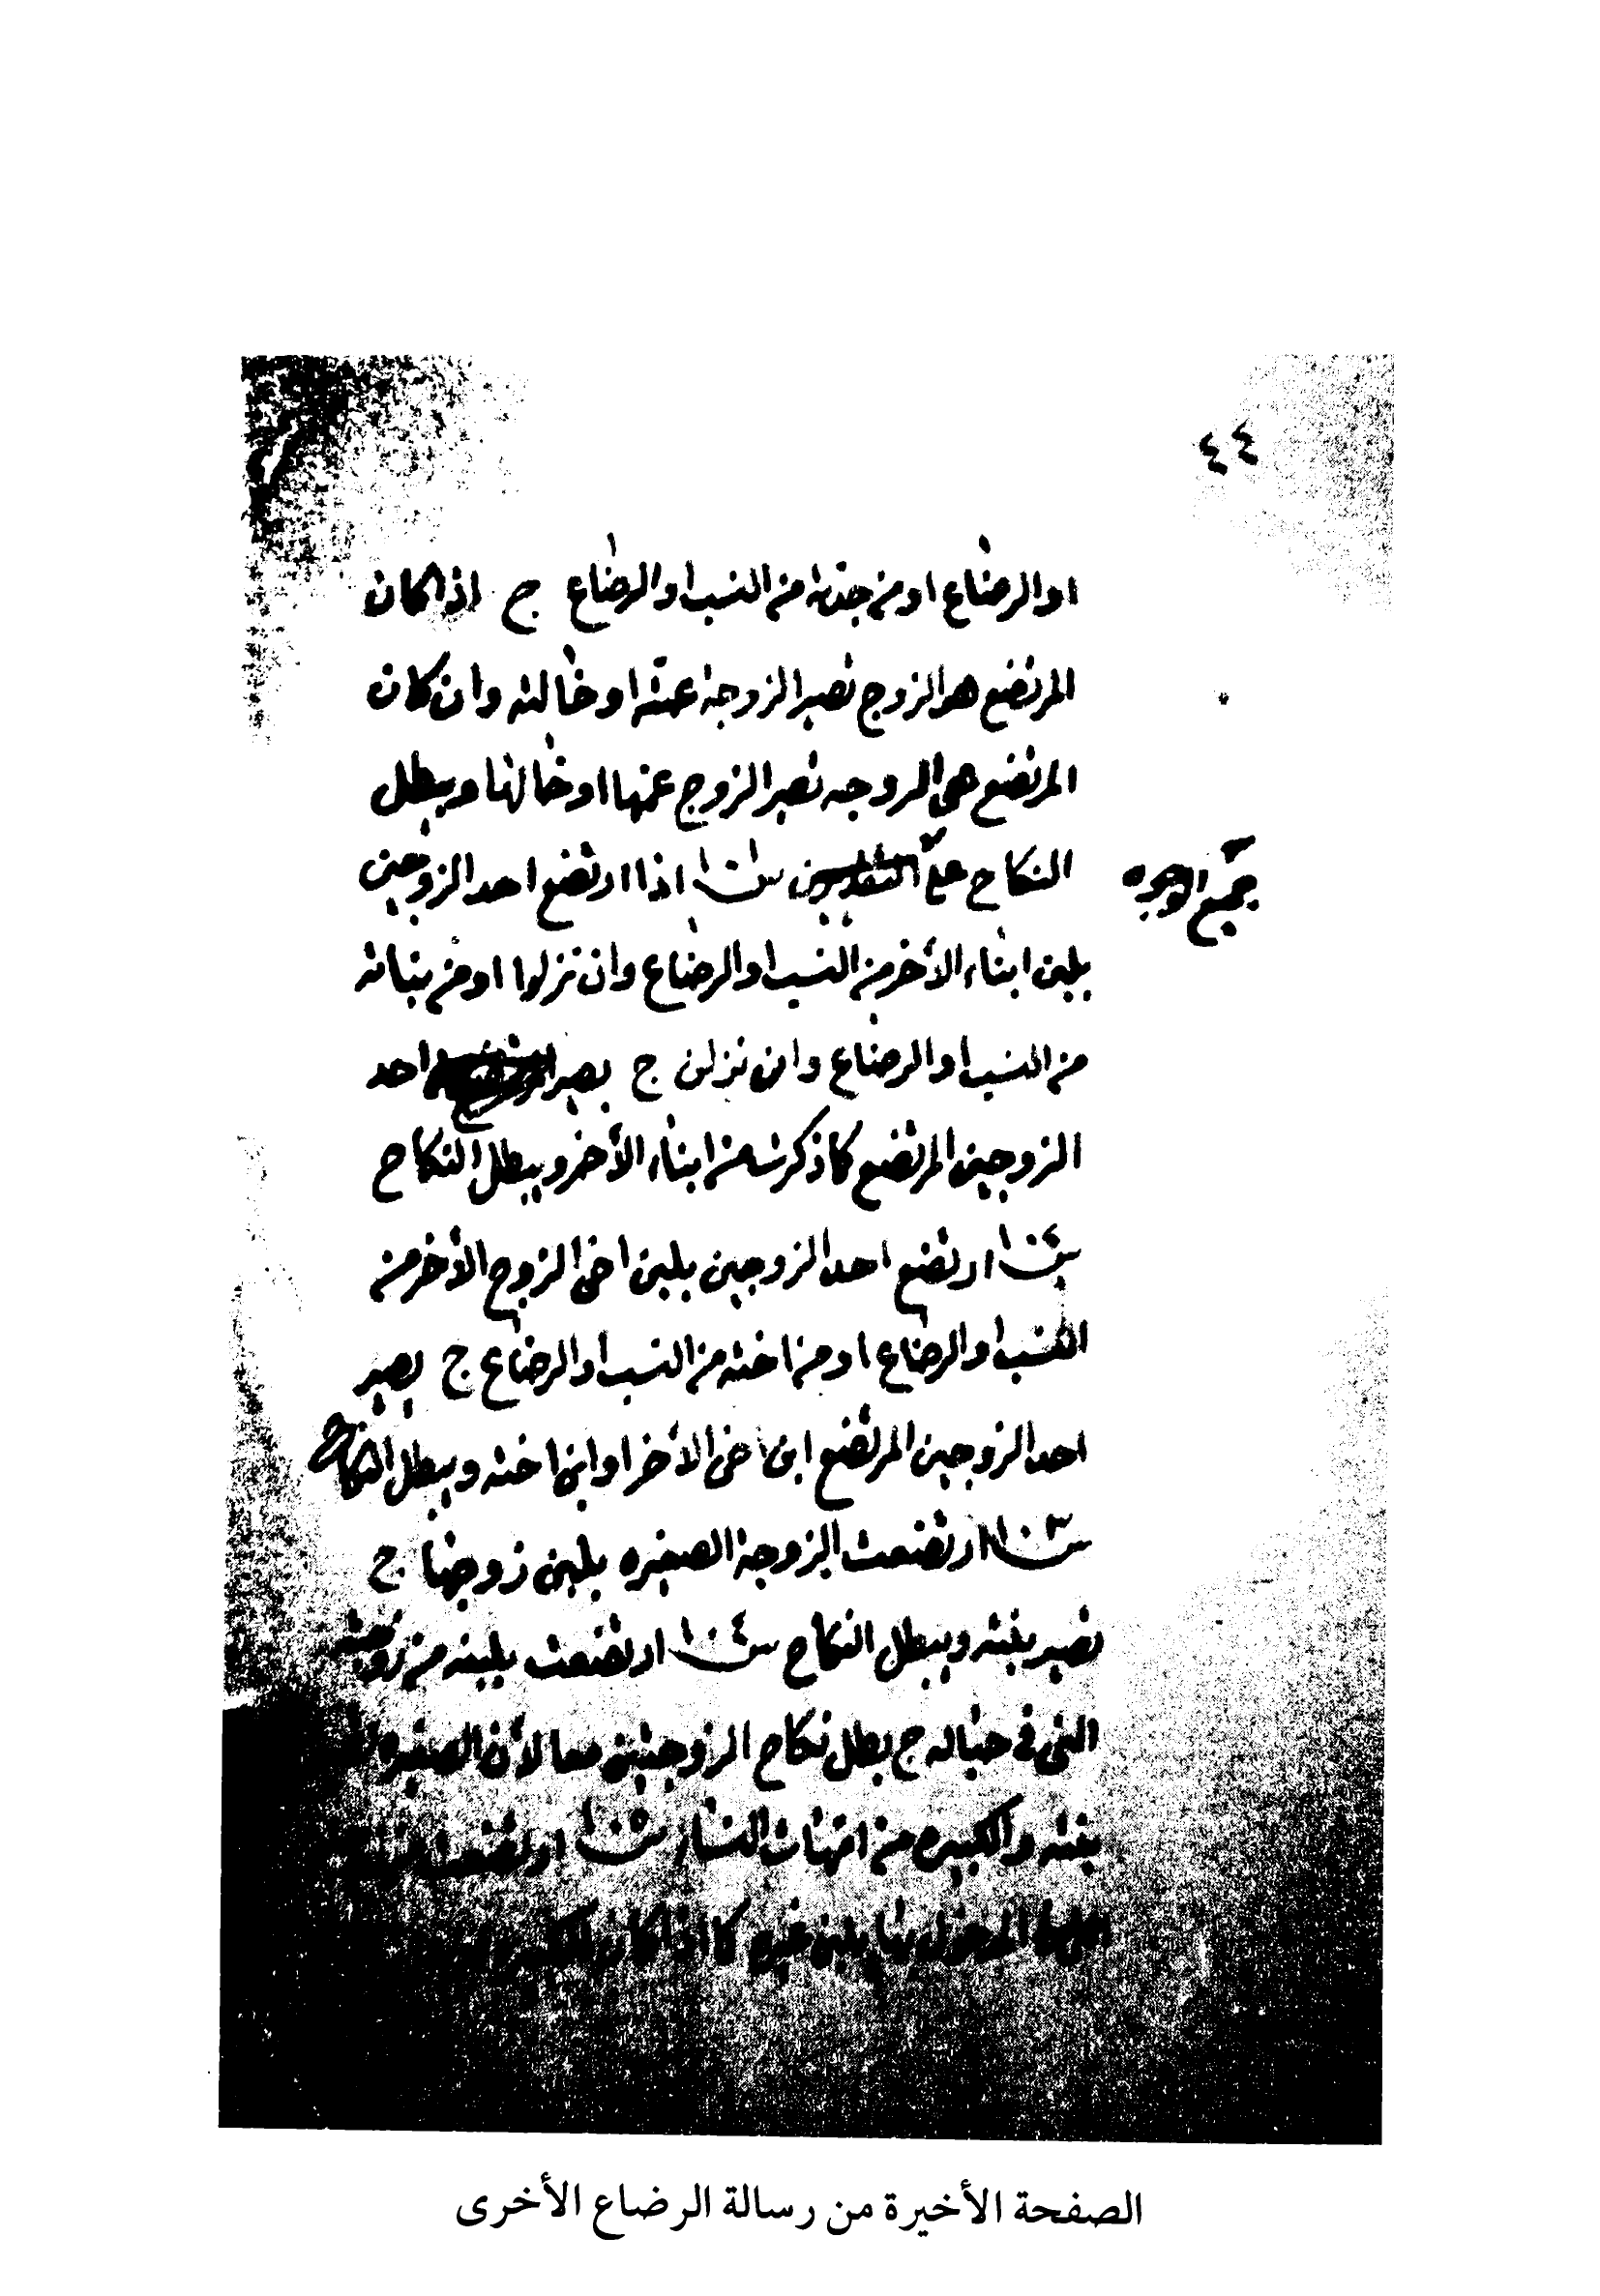 ٤٤
او الرضاع او من جدته من النسب او الرضاع ج اذا كان
المرتضع هو الزوج تصير الزوجة عمته او خالته وان كان
المرتضع هى الزوجه تصير الزوج عمها او خالها ويبطل
النكاح على اذا ارتضع احد الزوجين
جميع الوجوه
بلبن ابناء الأخر من النسب او الرضاع وان نزلوا او من بناته
من النسب او الرضاع وان نزلن ج يصير احد
الزوجين المرتضع كما ذكر من ابناء الأخر ويبطل النكاح
ارتضع احد الزوجين بلبن اخى الزوج الأخر من
النسب او الرضاع او من اخته من النسب او الرضاع ج يصير
احد الزوجين المرتضع ابن اخى الأخر او ابن اخته ويبطل النكاح
ارتضعت الزوجة الصغيره بلبن زوجها ج
تصير بنته ويبطل النكاح ارتضعت بلبنه من زوجته
التى فى حباله ج بطل نكاح الزوجتين معا لأن الصغيره
بنته والكبيره من امهات النساء
المدخول بها بلبن غيره كما اذا كان
الصفحة الأخيرة من رسالة الرضاع الأخرى